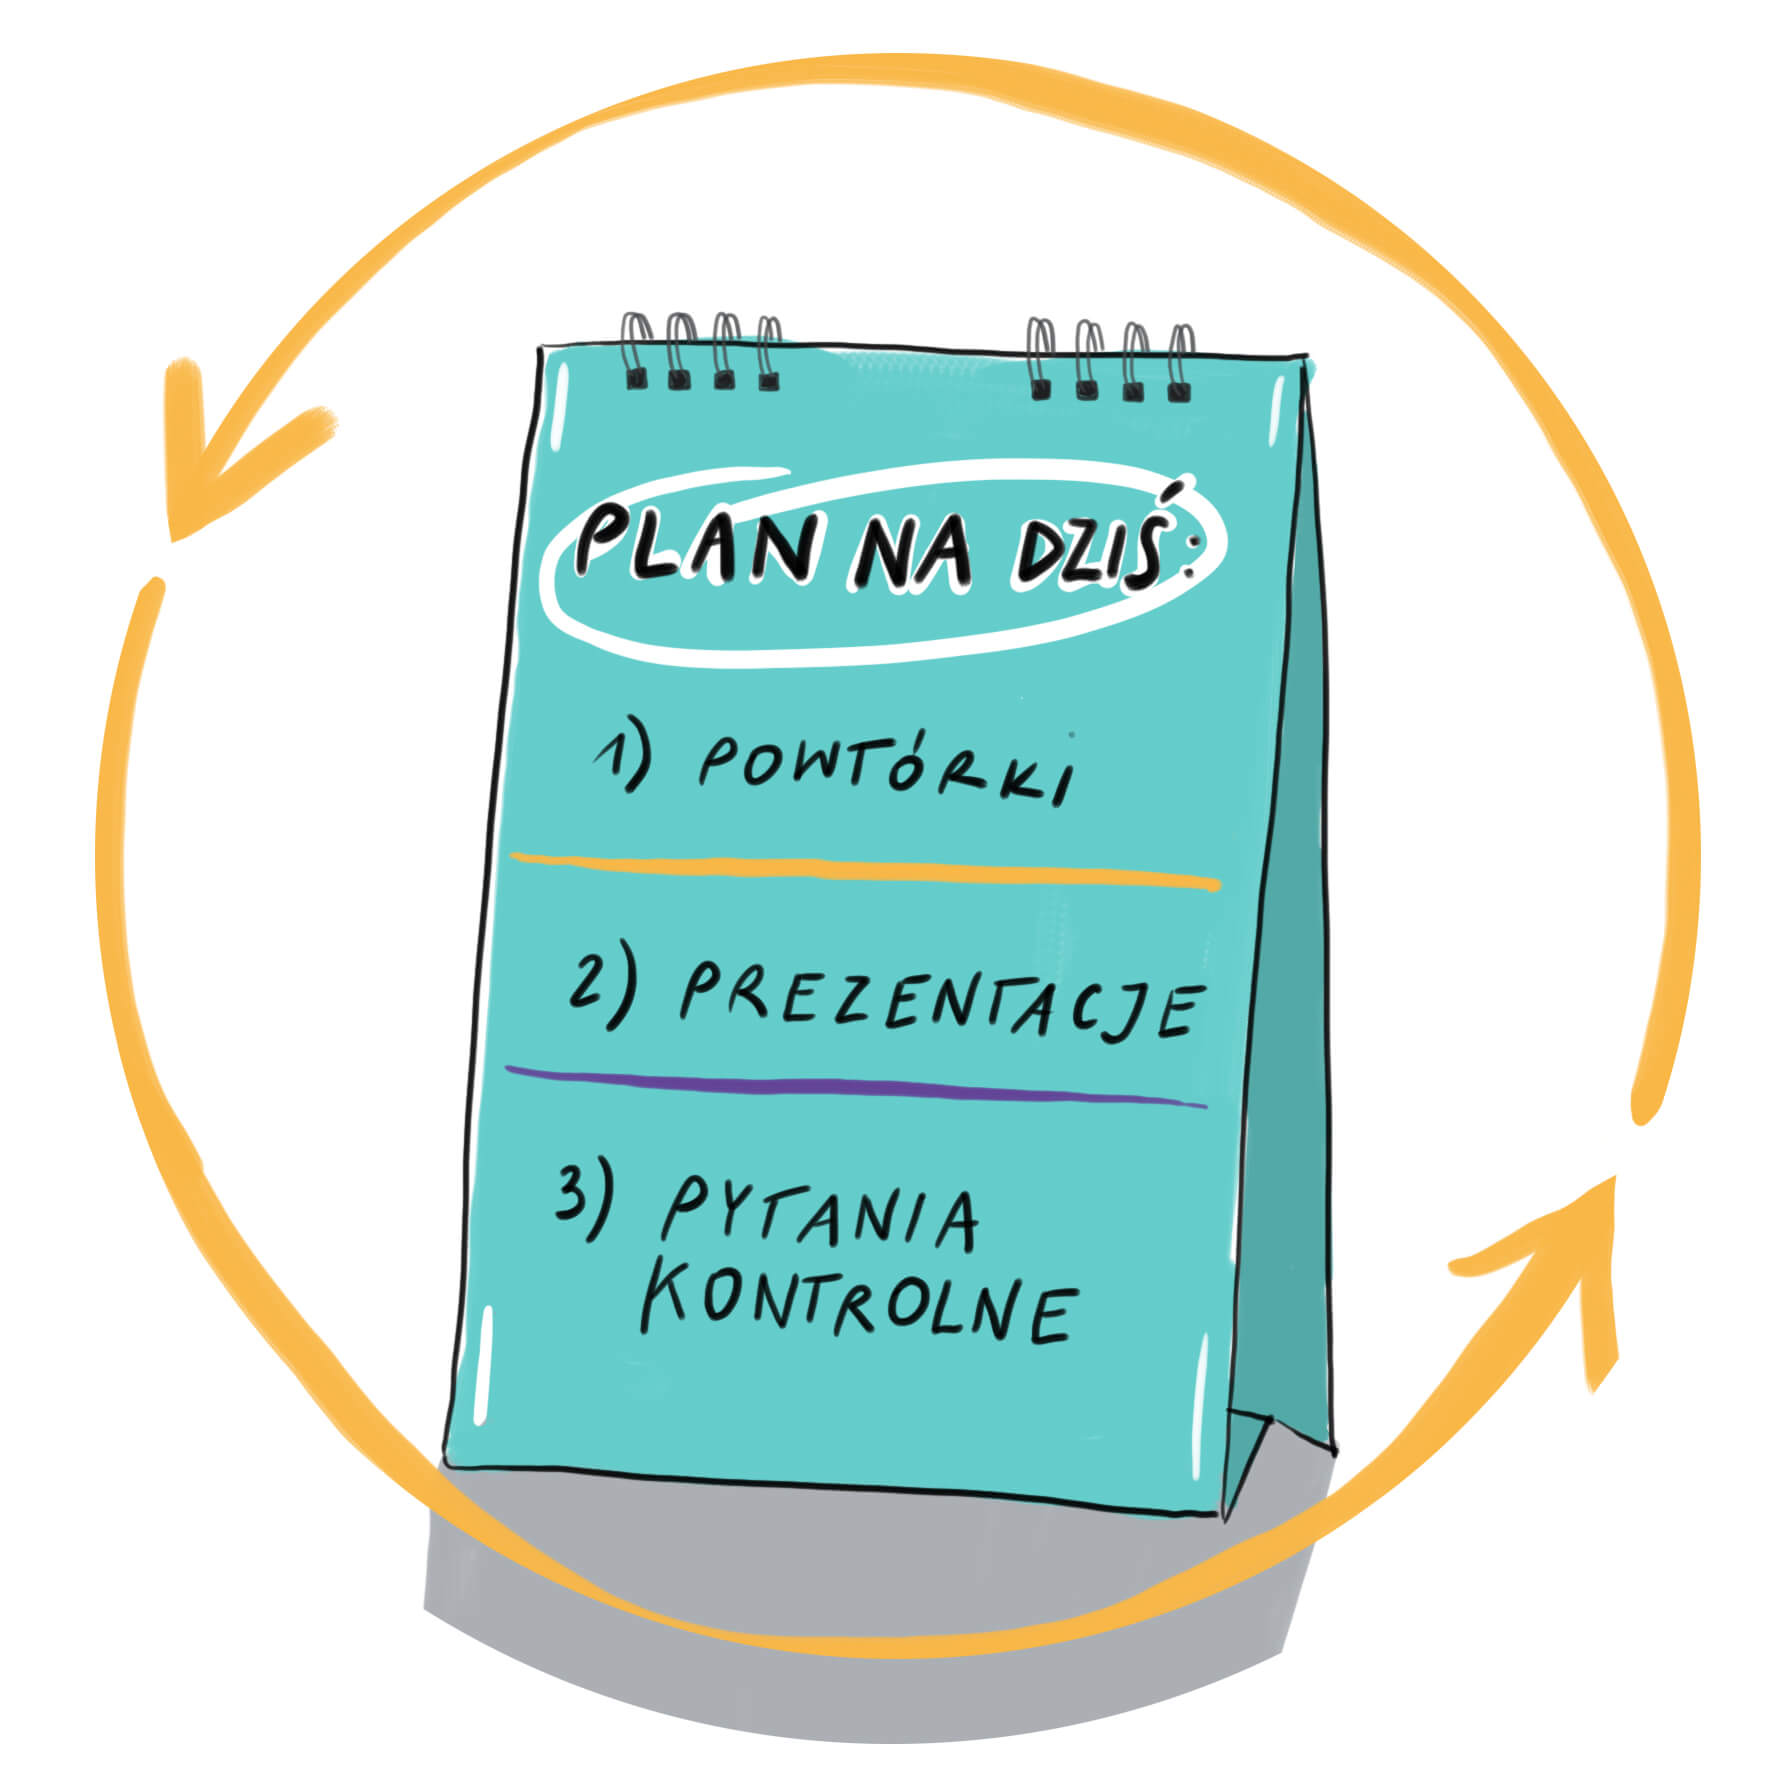 PLAN NA DZIŚ:
1) POWTÓRKI
2) PREZENTACJE
3) PYTANIA
KONTROLNE